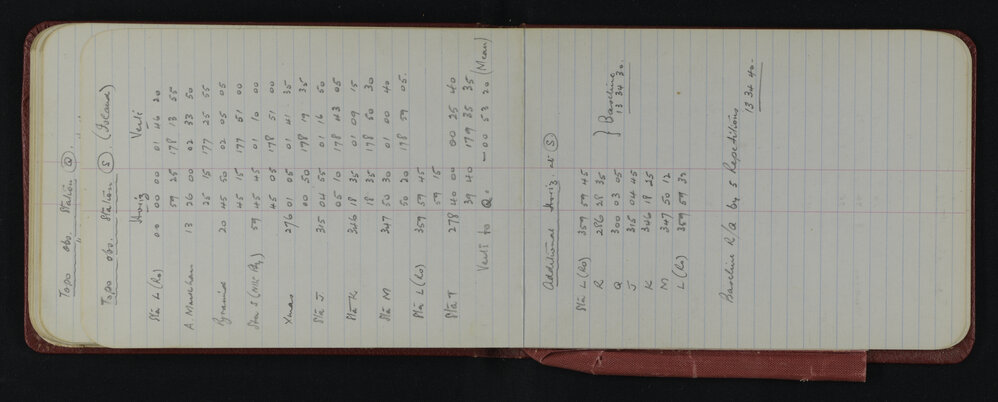 Topo obs. Station Q.
Topo obs. Station S (Island)
Horiz Verti
Sta L (Ro) 00 00 00 01 46 20
59 25 178 13 55
A. Marsham 13 26 00 02 33 50
25 15 177 25 55
Pyramid 20 45 50 02 05 05
45 15 177 51 00
Sta S 59 45 45 01 10 00
45 05 178 51 00
Xmas 276 01 05 01 41 35
00 50 178 19 35
Sta J 315 04 55 01 16 50
05 10 178 43 05
Sta K 346 18 35 01 09 15
18 35 178 50 30
Sta M 347 50 30 01 00 40
50 20 178 59 05
Sta L (Ro) 359 59 45
59 15
Sta T 278 40 00 00 25 40
39 40 179 35 35
Verti to Q. - 00 53 20 (Mean)
Additional Horiz. at S
Sta L (Ro) 359 59 45
R 286 28 35
Q 300 03 05 } Baseline 13 34 30.
J 315 04 45
K 346 18 25
M 347 50 12
L (Ro) 359 59 30
Baseline R/Q by 5 Repetitions
13 34 40.